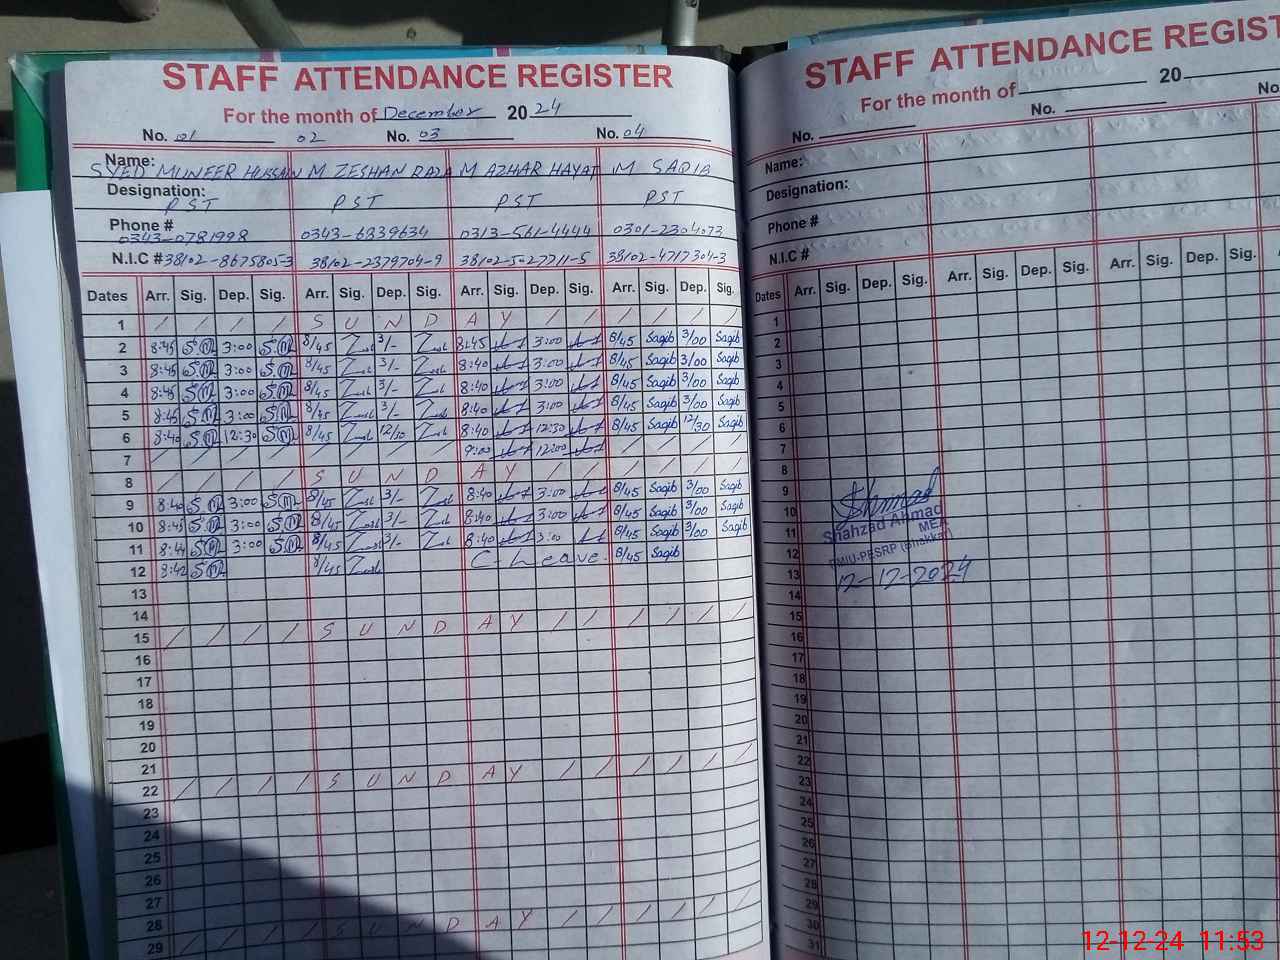 STAFF ATTENDANCE REGISTER
For the month of December 2024
No. 01 02 No. 03 No. 04
Name: SYED MUNEER HUSSAIN M ZESHAN RAZA M AZHAR HAYAT M SAQIB
Designation: PST PST PST PST
Phone # 0343-0781998 0343-6839634 0313-561-4444 0301-2304073
N.I.C # 38102-8675805-3 38102-2379704-9 38102-5027711-5 38102-4717304-3
Dates Arr. Sig. Dep. Sig. Arr. Sig. Dep. Sig. Arr. Sig. Dep. Sig. Arr. Sig. Dep. Sig.
1 / / / / S U N D A Y / / / / / /
2 8:45 SM 3:00 SM 8/45 3/- 8:45 3:00 8/45 Saqib 3/00 Saqib
3 8:45 SM 3:00 SM 8/45 3/- 8:40 3:00 8/45 Saqib 3/00 Saqib
4 8:45 SM 3:00 SM 8/45 3/- 8:40 3:00 8/45 Saqib 3/00 Saqib
5 8:45 SM 3:00 SM 8/45 3/- 8:40 3:00 8/45 Saqib 3/00 Saqib
6 8:40 SM 12:30 SM 8/45 12/30 8:40 12:30 8/45 Saqib 12/30 Saqib
7 / / / / / / / / 9:00 12:00 / / / /
8 / / / / S U N D A Y / / / / / /
9 8:40 SM 3:00 SM 8/45 3/- 8:40 3:00 8/45 Saqib 3/00 Saqib
10 8:45 SM 3:00 SM 8/45 3/- 8:40 3:00 8/45 Saqib 3/00 Saqib
11 8:44 SM 3:00 SM 8/45 3/- 8:40 3:00 8/45 Saqib 3/00 Saqib
12 8:42 SM 8/45 C-Leave. 8/45 Saqib
13
14
15 / / / / S U N D A Y / / / / / /
16
17
18
19
20
21
22 / / / / S U N D A Y / / / / / /
23
24
25
26
27
28
29 / / / / S U N D A Y / / / / / /
STAFF ATTENDANCE REGIST
For the month of 20
No. No. No
Name:
Designation:
Phone #
N.I.C #
Dates Arr. Sig. Dep. Sig. Arr. Sig. Dep. Sig. Arr. Sig. Dep. Sig.
1
2
3
4
5
6
7
8
9
10 Ahmad
11 Shahzad Ahmad
MEA
12 DMIU-PESRP (Bhakkar)
13 12-12-2024
14
15
16
17
18
19
20
21
22
23
24
25
26
27
28
29
30
31
12-12-24 11:53